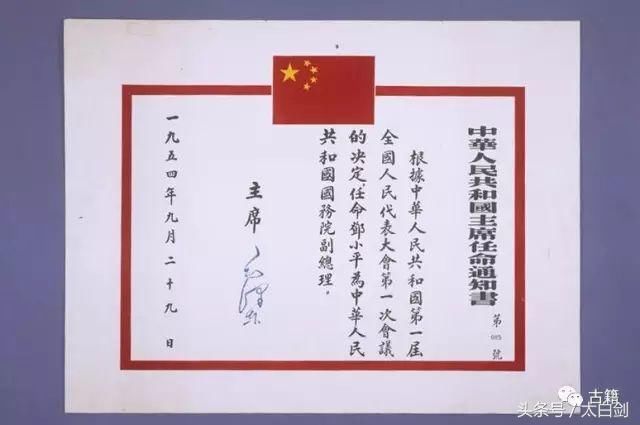 中華人民共和國主席任命通知書
第 085 號
根據中華人民共和國第一屆
全國人民代表大會第一次會議
的决定,任命鄧小平為中華人民
共和國國務院副總理。
主席 毛澤东
一九五四年九月二十九日
古籍
头条号/太白剑